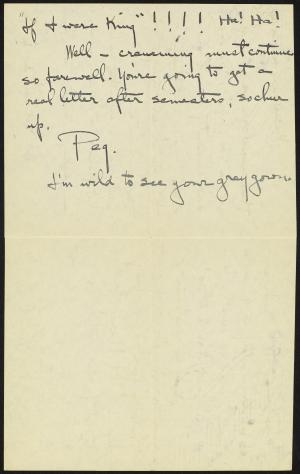 "If I were King"!!!! Ha! Ha!
Well – cramming must continue
so farewell. You're going to get a
real letter after semesters, so cheer
up.
Peg.
I'm wild to see your grey gown.